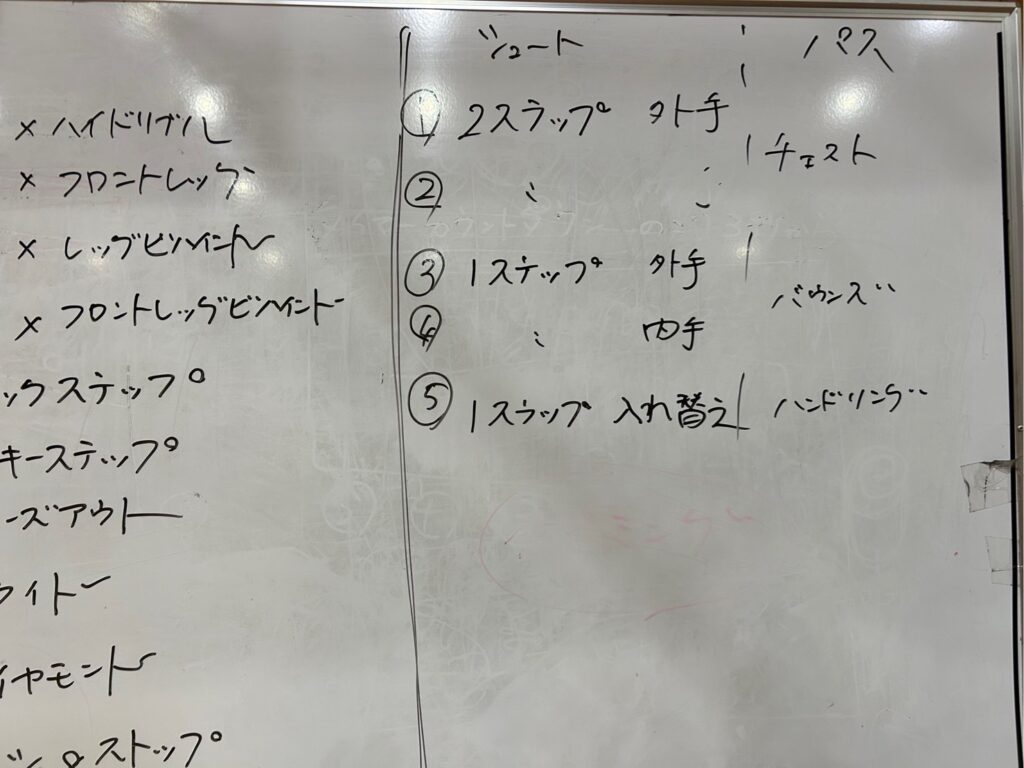 × ハイドリブル
× フロントレッグ
× レッグビハインド
× フロントレッグビハインド
ックステップ
キーステップ
ーズアウト
ライド
イヤモンド
ストップ
シュート パス
① 2ステップ 外手
チェスト
② 〃 〃
③ 1ステップ 外手
バウンズ
④ 〃 内手
⑤ 1ステップ 入れ替え ハンドリング